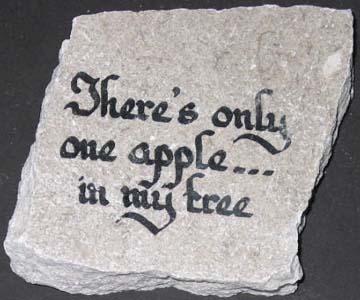 There's only
one apple...
in my tree